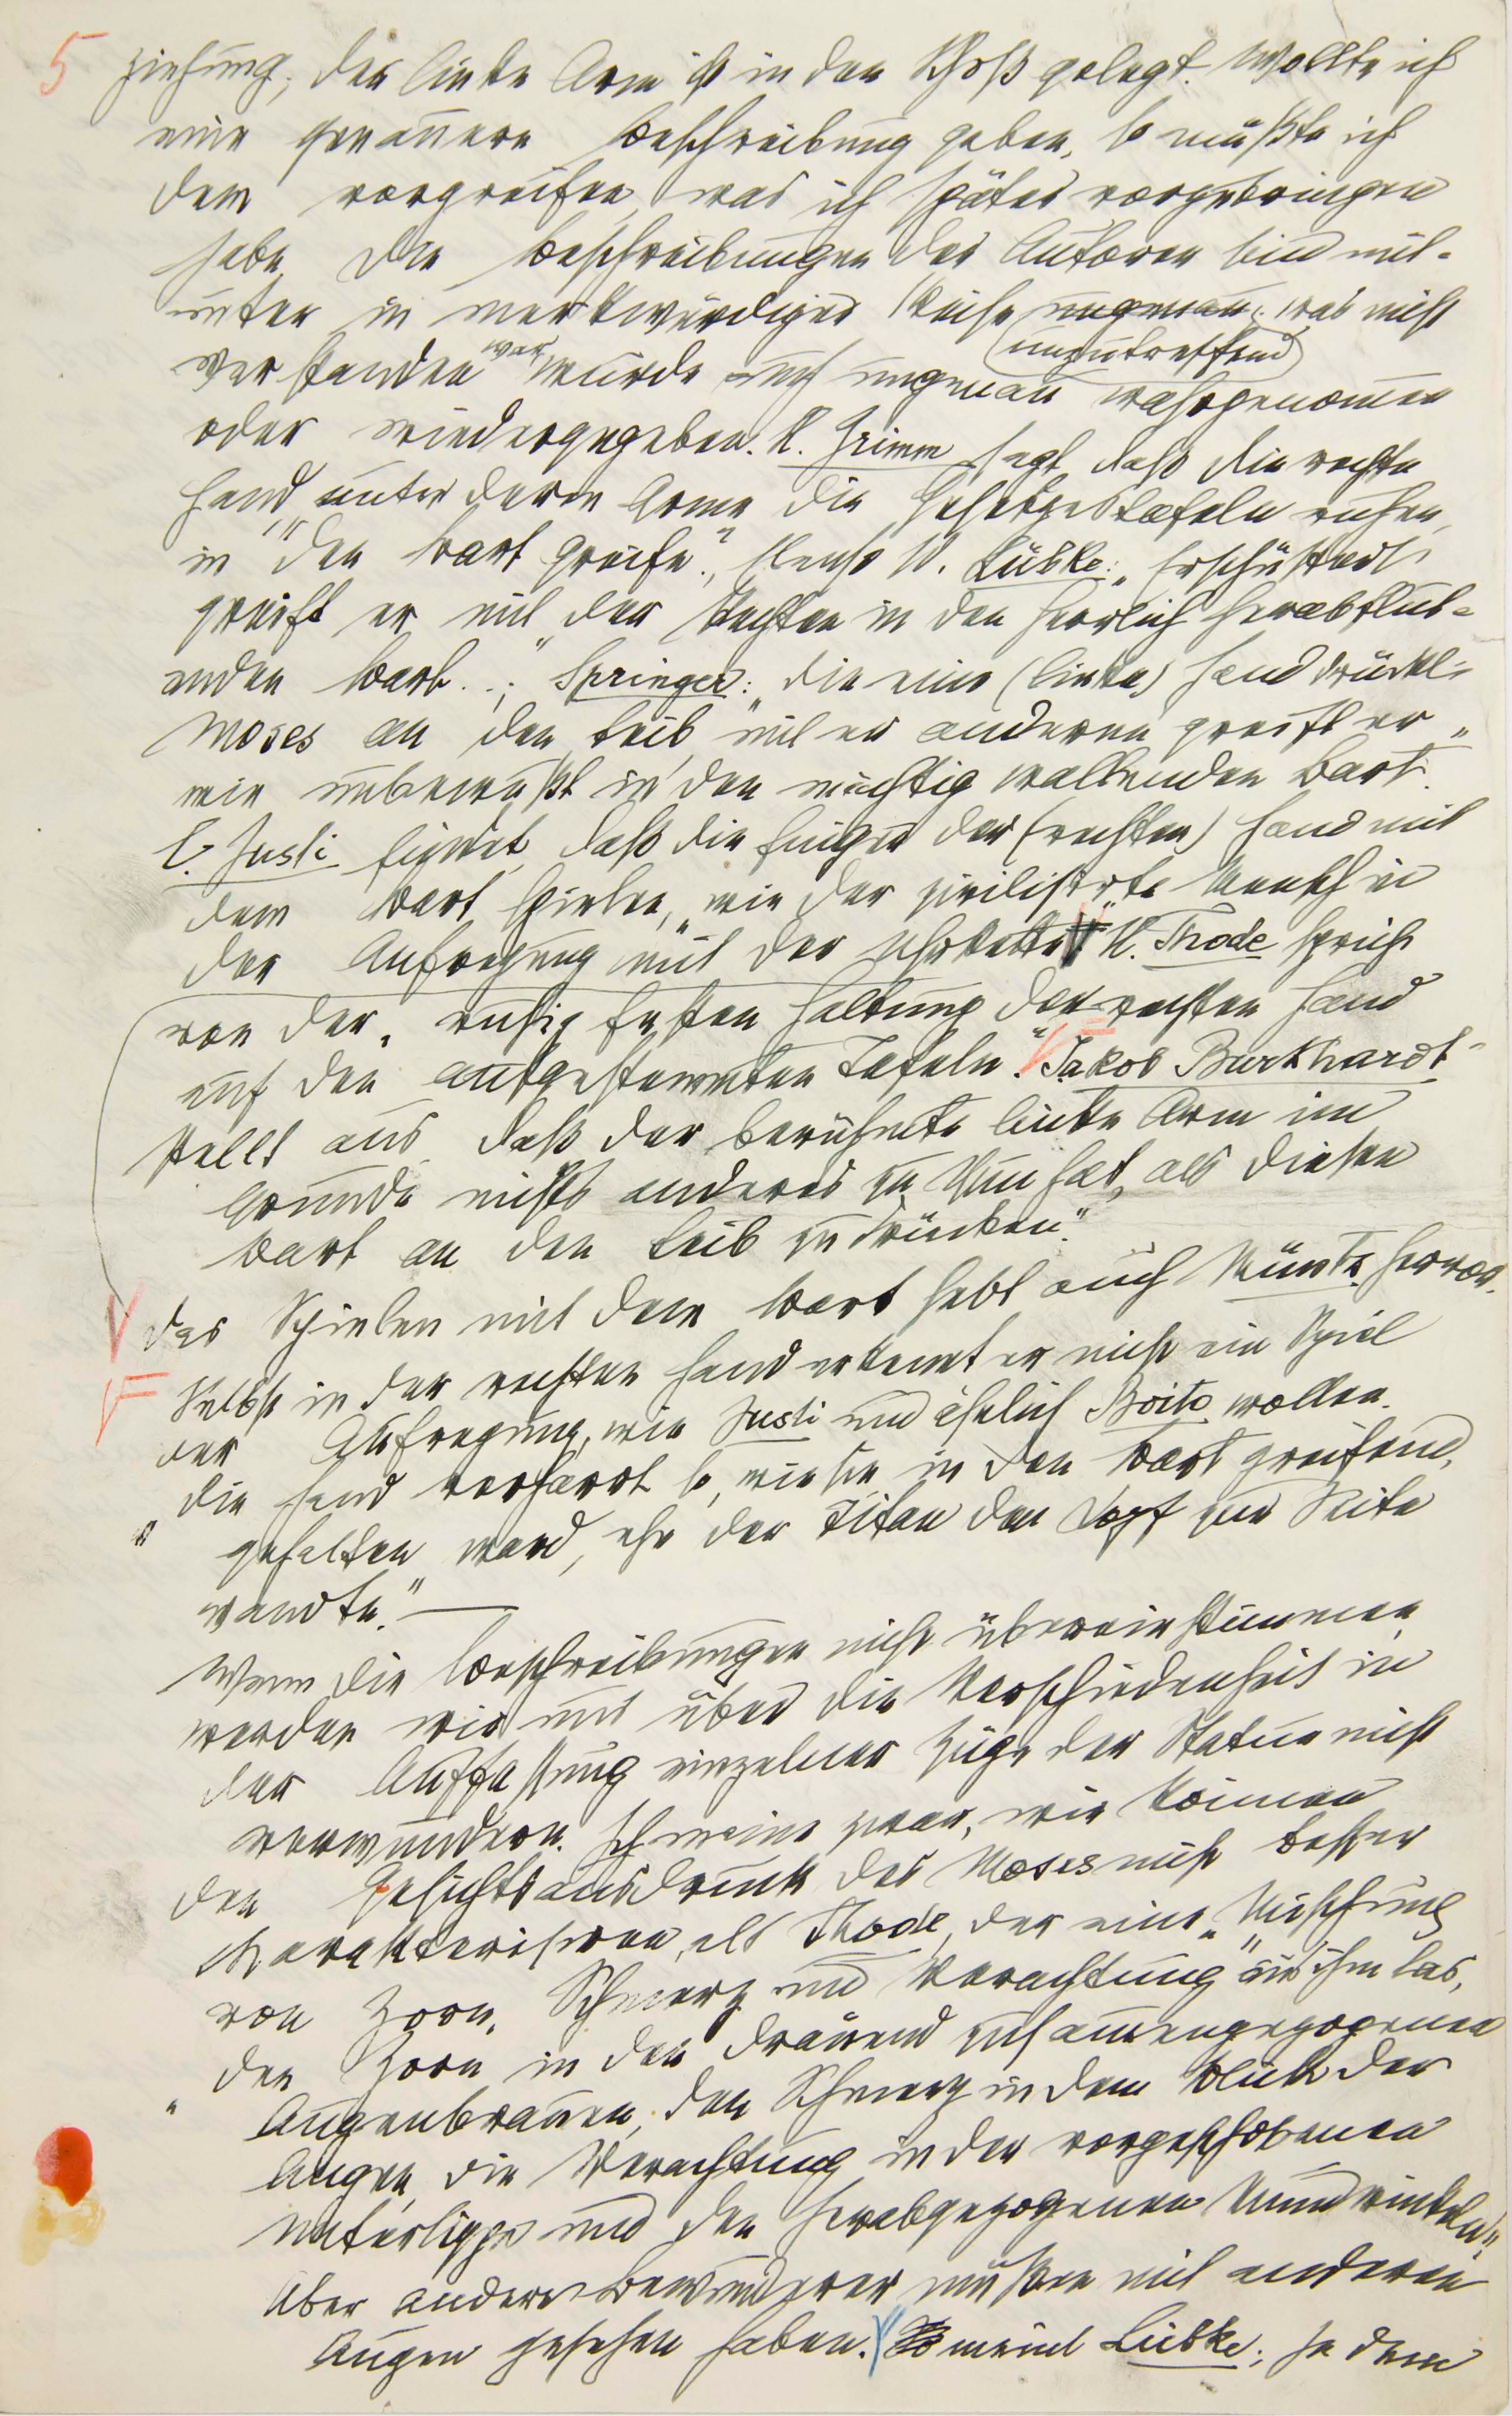 5 ziehung, der linke Arm ist in den Schoß gelegt. Wollte ich
eine genauere Beschreibung geben, so müßte ich
dem vorgreifen, was ich später vorzubringen
habe. Die Beschreibungen der Autoren sind mit-
unter in merkwürdiger Weise ungenau; was nicht
unzutreffend
verstanden war wurde auch ungenau wahrgenommen
oder wiedergegeben. H. Grimm sagt daß die rechte
Hand „unter deren Arme die Gesetzestafeln ruhen,
in den Bart greife“, Ebenso W. Lübke: „Erschüttert
greift er mit der Rechten in den herrlich herabflut-
enden Bart..“; Springer: „die eine (linke) Hand drückt
Moses an den Leib mit er anderen greift er
wie unbewußt in den mächtig wallenden Bart.“
C. Justi findet, daß die Finger der (rechten) Hand mit
dem Bart spielen, „wie der zivilisirte Mensch in
der Aufregung mit der Uhrkette.“ H. Thode spricht
von der „ruhig festen Haltung der rechten Hand
auf den aufgestemmten Tafeln“. Jakob Burkhardt
stellt aus daß der berühmte linke Arm im
Grunde nichts anderes zu thun hat, als diesen
Bart an den Leib zu drücken“.
Das Spielen mit dem Bart hebt auch Müntz hervor.
Selbst in der rechten Hand erkennt er nicht ein Spiel
der Aufregung, wie Justi und ähnlich Boito wollen.
„ die Hand verharrt so, wie sie, in den Bart greifend,
gehalten ward, ehe der Titan den Kopf zur Seite
wandte.“ —
Wenn die Beschreibungen nicht übereinstimmen
werden wir uns über die Verschiedenheit in
der Auffassung einzelner Züge der Statue nicht
verwundern. Ich meine zwar, wir können
den Gesichtsausdruck des Moses nicht besser
charakterisiren, als Thode, der eine „Mischung
von Zorn, Schmerz und Verachtung“ aus ihm las,
„ den Zorn in den dräuend zusammengezogenen
Augenbrauen, den Schmerz in dem Blick der
Augen, die Verachtung in der vorgeschobenen
Unterlippe und den herabgezogenen Mundwinkeln“.
Aber andere Bewunderer müssen mit anderen
Augen gesehen haben. So meint Lübke: In dem